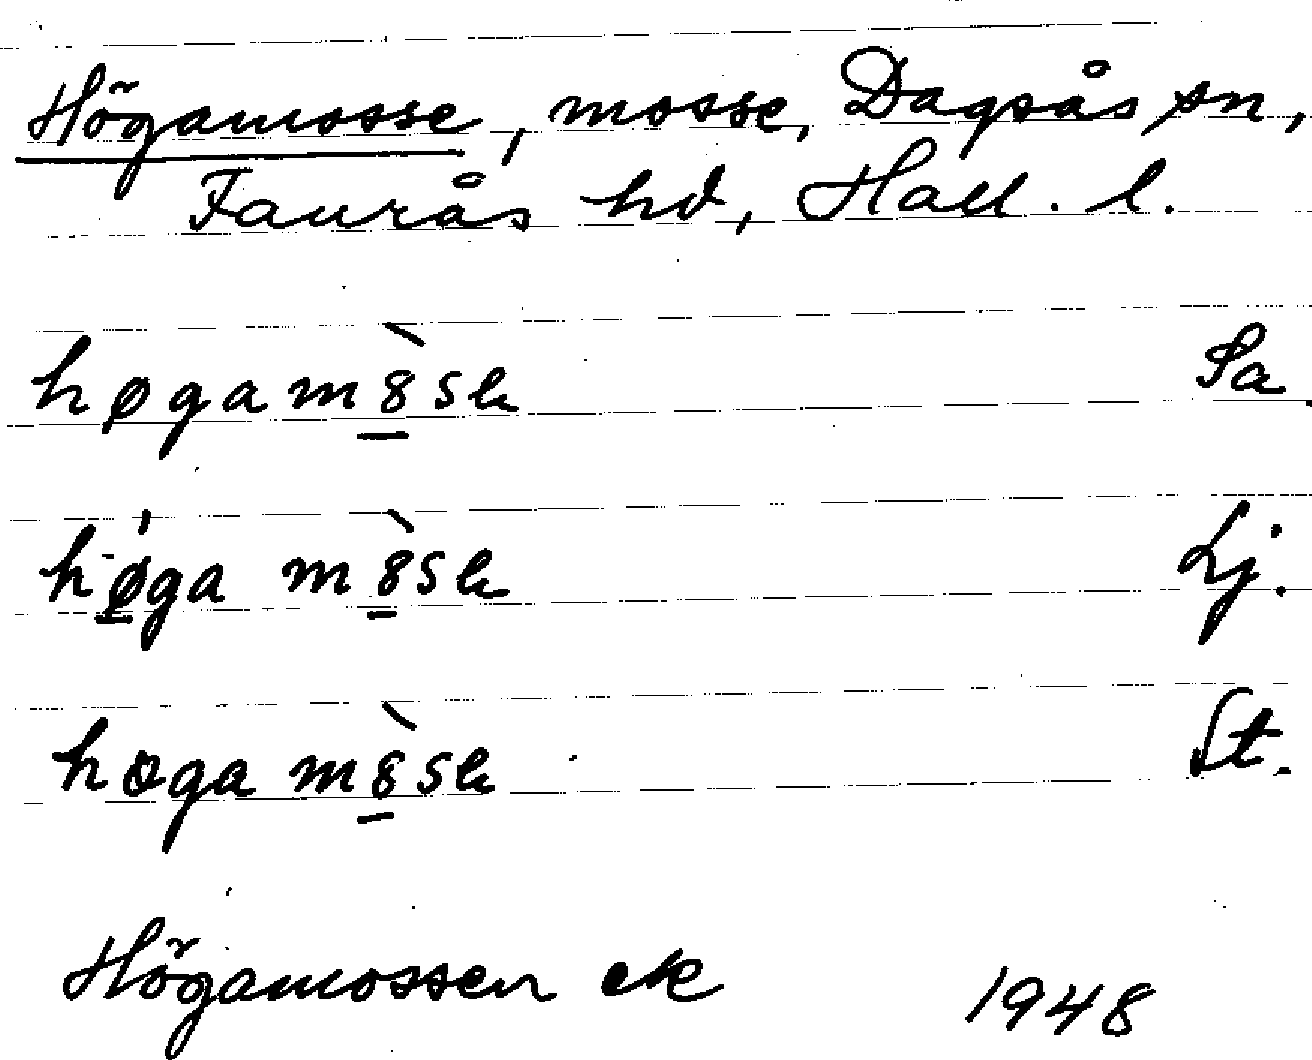 Högamosse, mosse, Dagsås sn,
Faurås hd, Hall. l.
høgam8̀se Sa.
hǿga m8̀se Lj.
høga m8̀se St.
Högamossen ek 1948